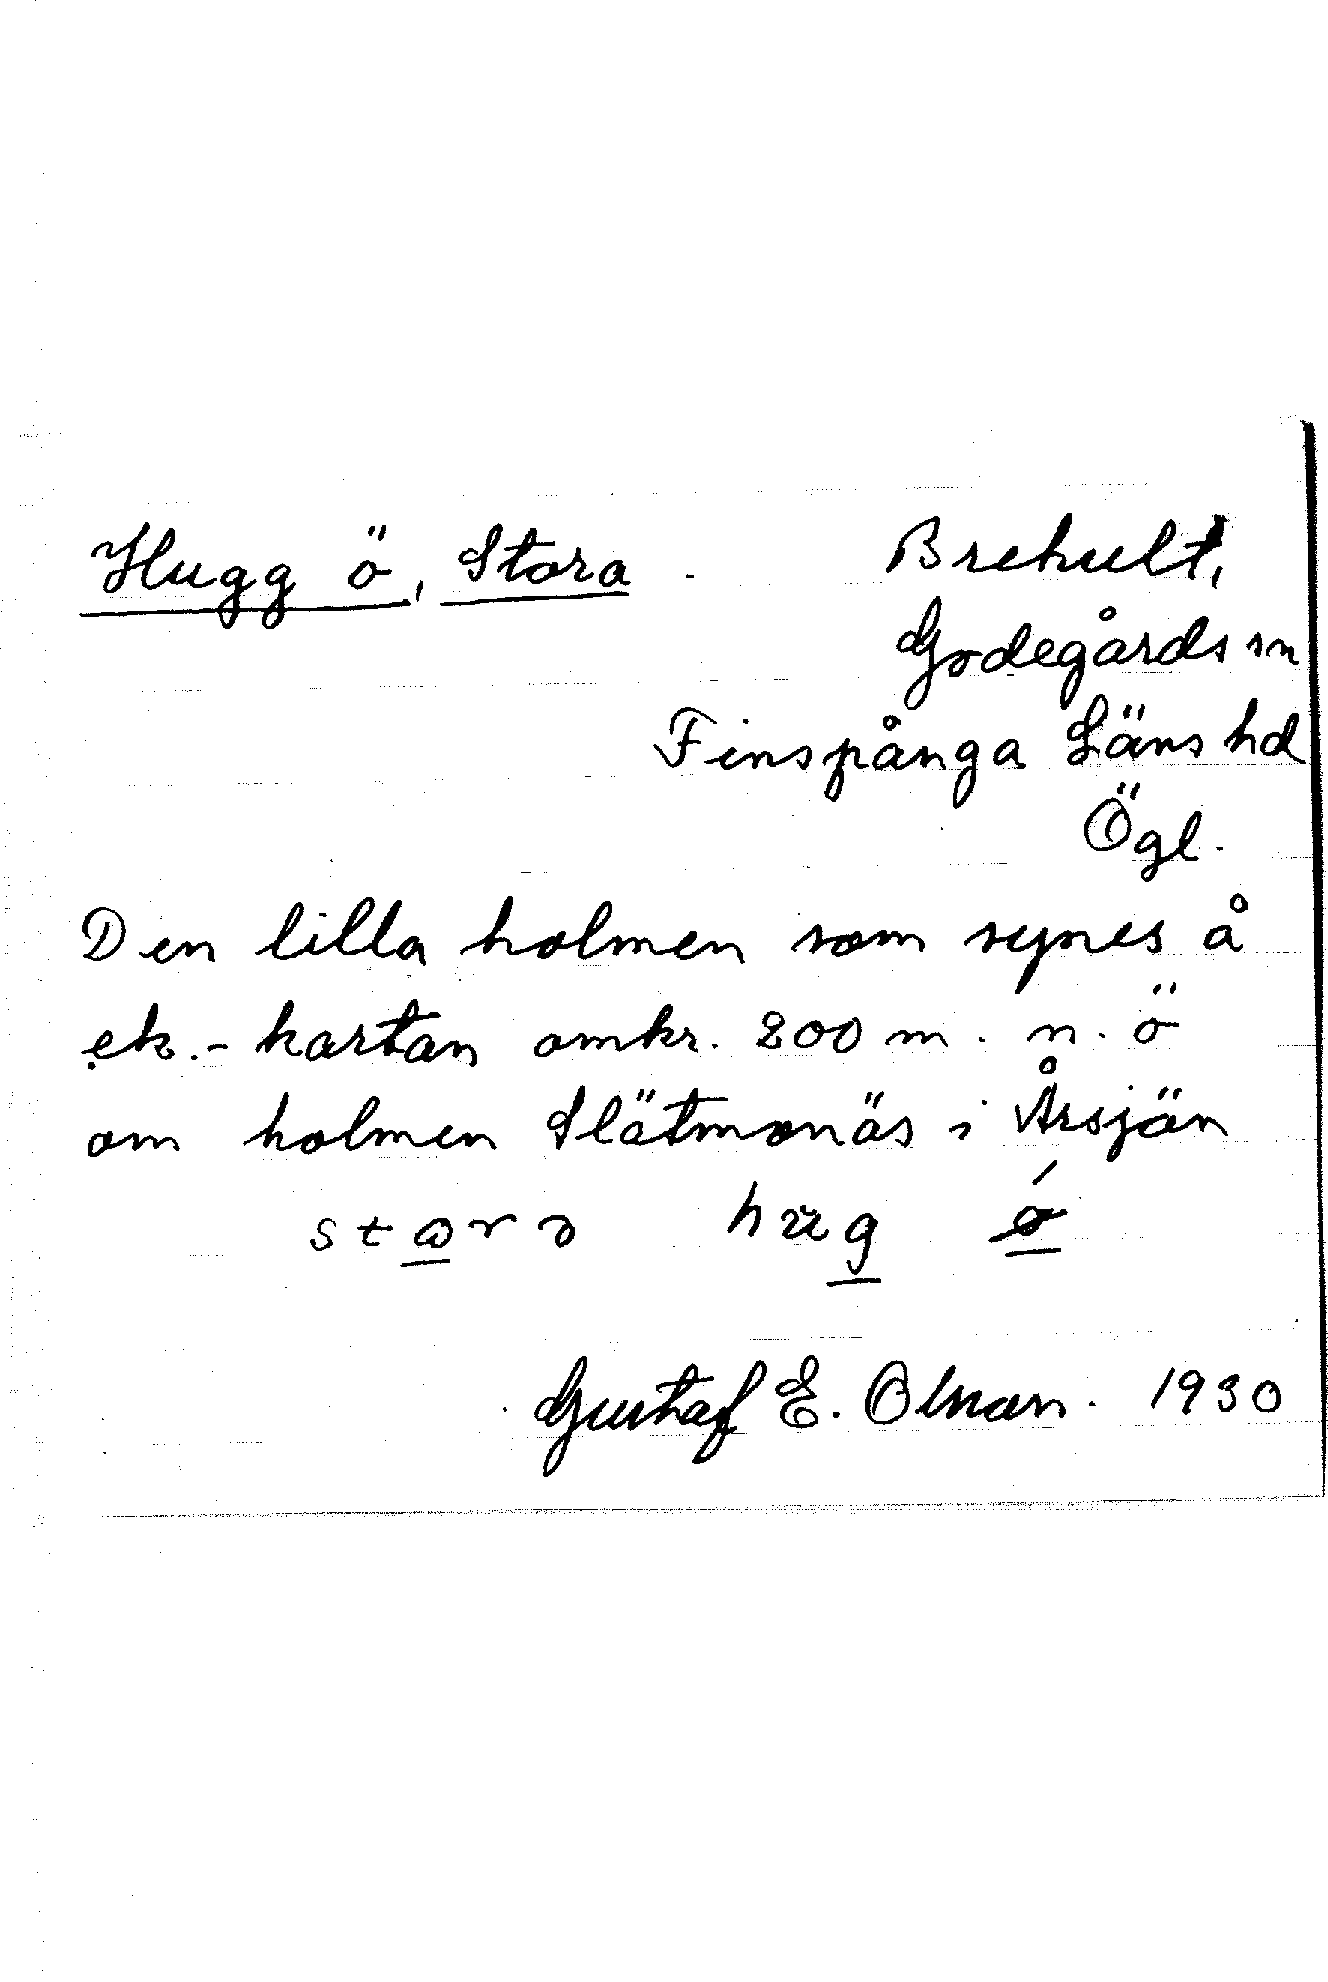 Hugg ö, Stora - Brehult,
Godegårds sn
Finspånga Läns hd
Ögl.
Den lilla holmen som synes å
ek.-kartan omkr. 200 m. n. ö
om holmen Slätmonäs i Årsjön
Gustaf E. Olson. 1930